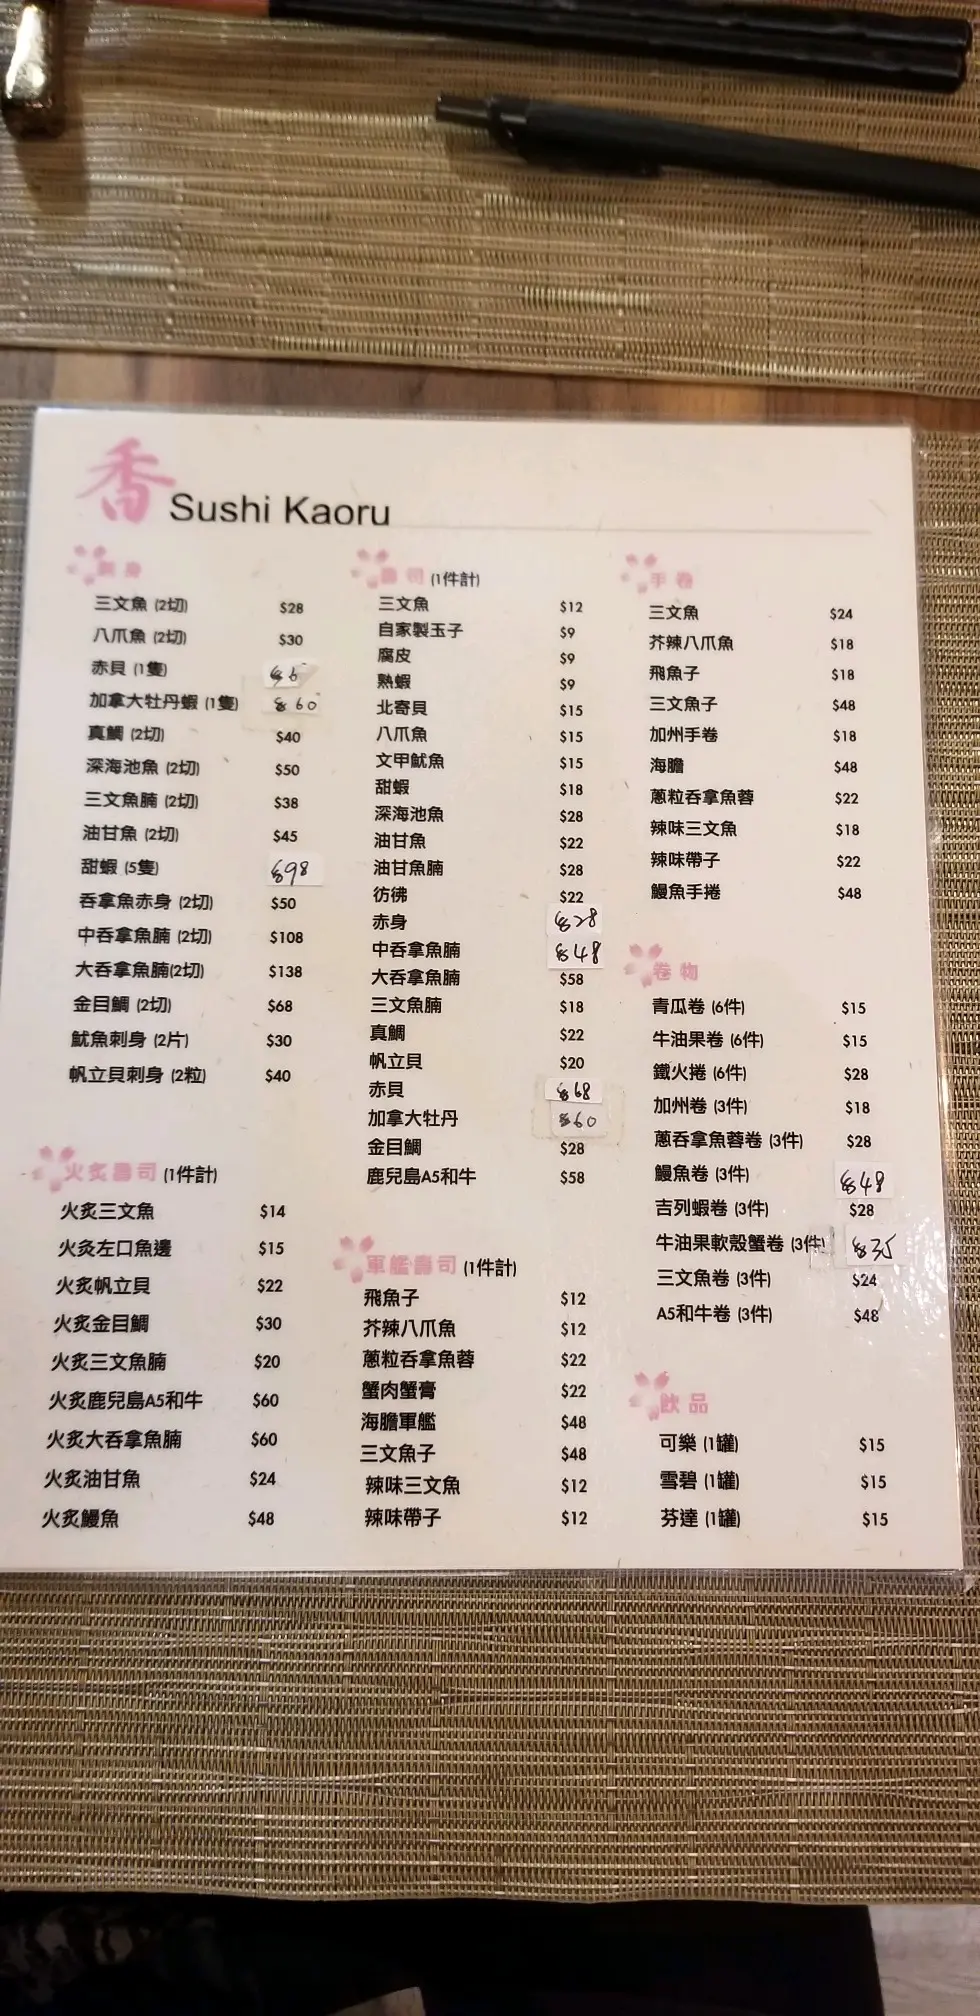 香 Sushi Kaoru
刺身
三文魚 (2切) $28
八爪魚 (2切) $30
赤貝 (1隻)
加拿大牡丹蝦 (1隻) $60
真鯛 (2切) $40
深海池魚 (2切) $50
三文魚腩 (2切) $38
油甘魚 (2切) $45
甜蝦 (5隻) $98
吞拿魚赤身 (2切) $50
中吞拿魚腩 (2切) $108
大吞拿魚腩(2切) $138
金目鯛 (2切) $68
魷魚刺身 (2片) $30
帆立貝刺身 (2粒) $40
火炙壽司 (1件計)
火炙三文魚 $14
火灸左口魚邊 $15
火炙帆立貝 $22
火炙金目鯛 $30
火炙三文魚腩 $20
火炙鹿兒島A5和牛 $60
火炙大吞拿魚腩 $60
火炙油甘魚 $24
火炙鰻魚 $48
壽司 (1件計)
三文魚 $12
自家製玉子 $9
腐皮 $9
熟蝦 $9
北寄貝 $15
八爪魚 $15
文甲魷魚 $15
甜蝦 $18
深海池魚 $28
油甘魚 $22
油甘魚腩 $28
彷彿 $22
赤身 $28
中吞拿魚腩 $48
大吞拿魚腩 $58
三文魚腩 $18
真鯛 $22
帆立貝 $20
赤貝 $68
加拿大牡丹 $60
金目鯛 $28
鹿兒島A5和牛 $58
軍艦壽司 (1件計)
飛魚子 $12
芥辣八爪魚 $12
蔥粒吞拿魚蓉 $22
蟹肉蟹膏 $22
海膽軍艦 $48
三文魚子 $48
辣味三文魚 $12
辣味帶子 $12
手卷
三文魚 $24
芥辣八爪魚 $18
飛魚子 $18
三文魚子 $48
加州手卷 $18
海膽 $48
蔥粒吞拿魚蓉 $22
辣味三文魚 $18
辣味帶子 $22
鰻魚手捲 $48
卷物
青瓜卷 (6件) $15
牛油果卷 (6件) $15
鐵火捲 (6件) $28
加州卷 (3件) $18
蔥吞拿魚蓉卷 (3件) $28
鰻魚卷 (3件) $48
吉列蝦卷 (3件) $28
牛油果軟殼蟹卷 (3件) $35
三文魚卷 (3件) $24
A5和牛卷 (3件) $48
飲品
可樂 (1罐) $15
雪碧 (1罐) $15
芬達 (1罐) $15